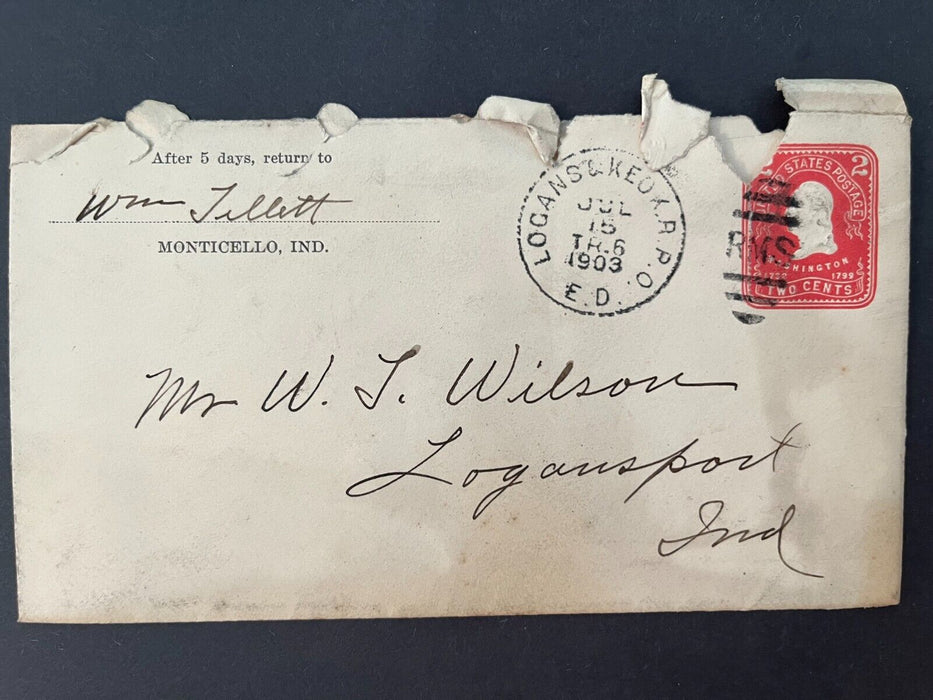 After 5 days, return to
Wm Tillett
MONTICELLO, IND.
LOGANS & KEOK. R.P.O.
JUL
15
TR.6
1903
E.D.
RMS
2 STATES POSTAGE 2
WASHINGTON
1732 1799
TWO CENTS
Mr W. T. Wilson
Logansport
Ind